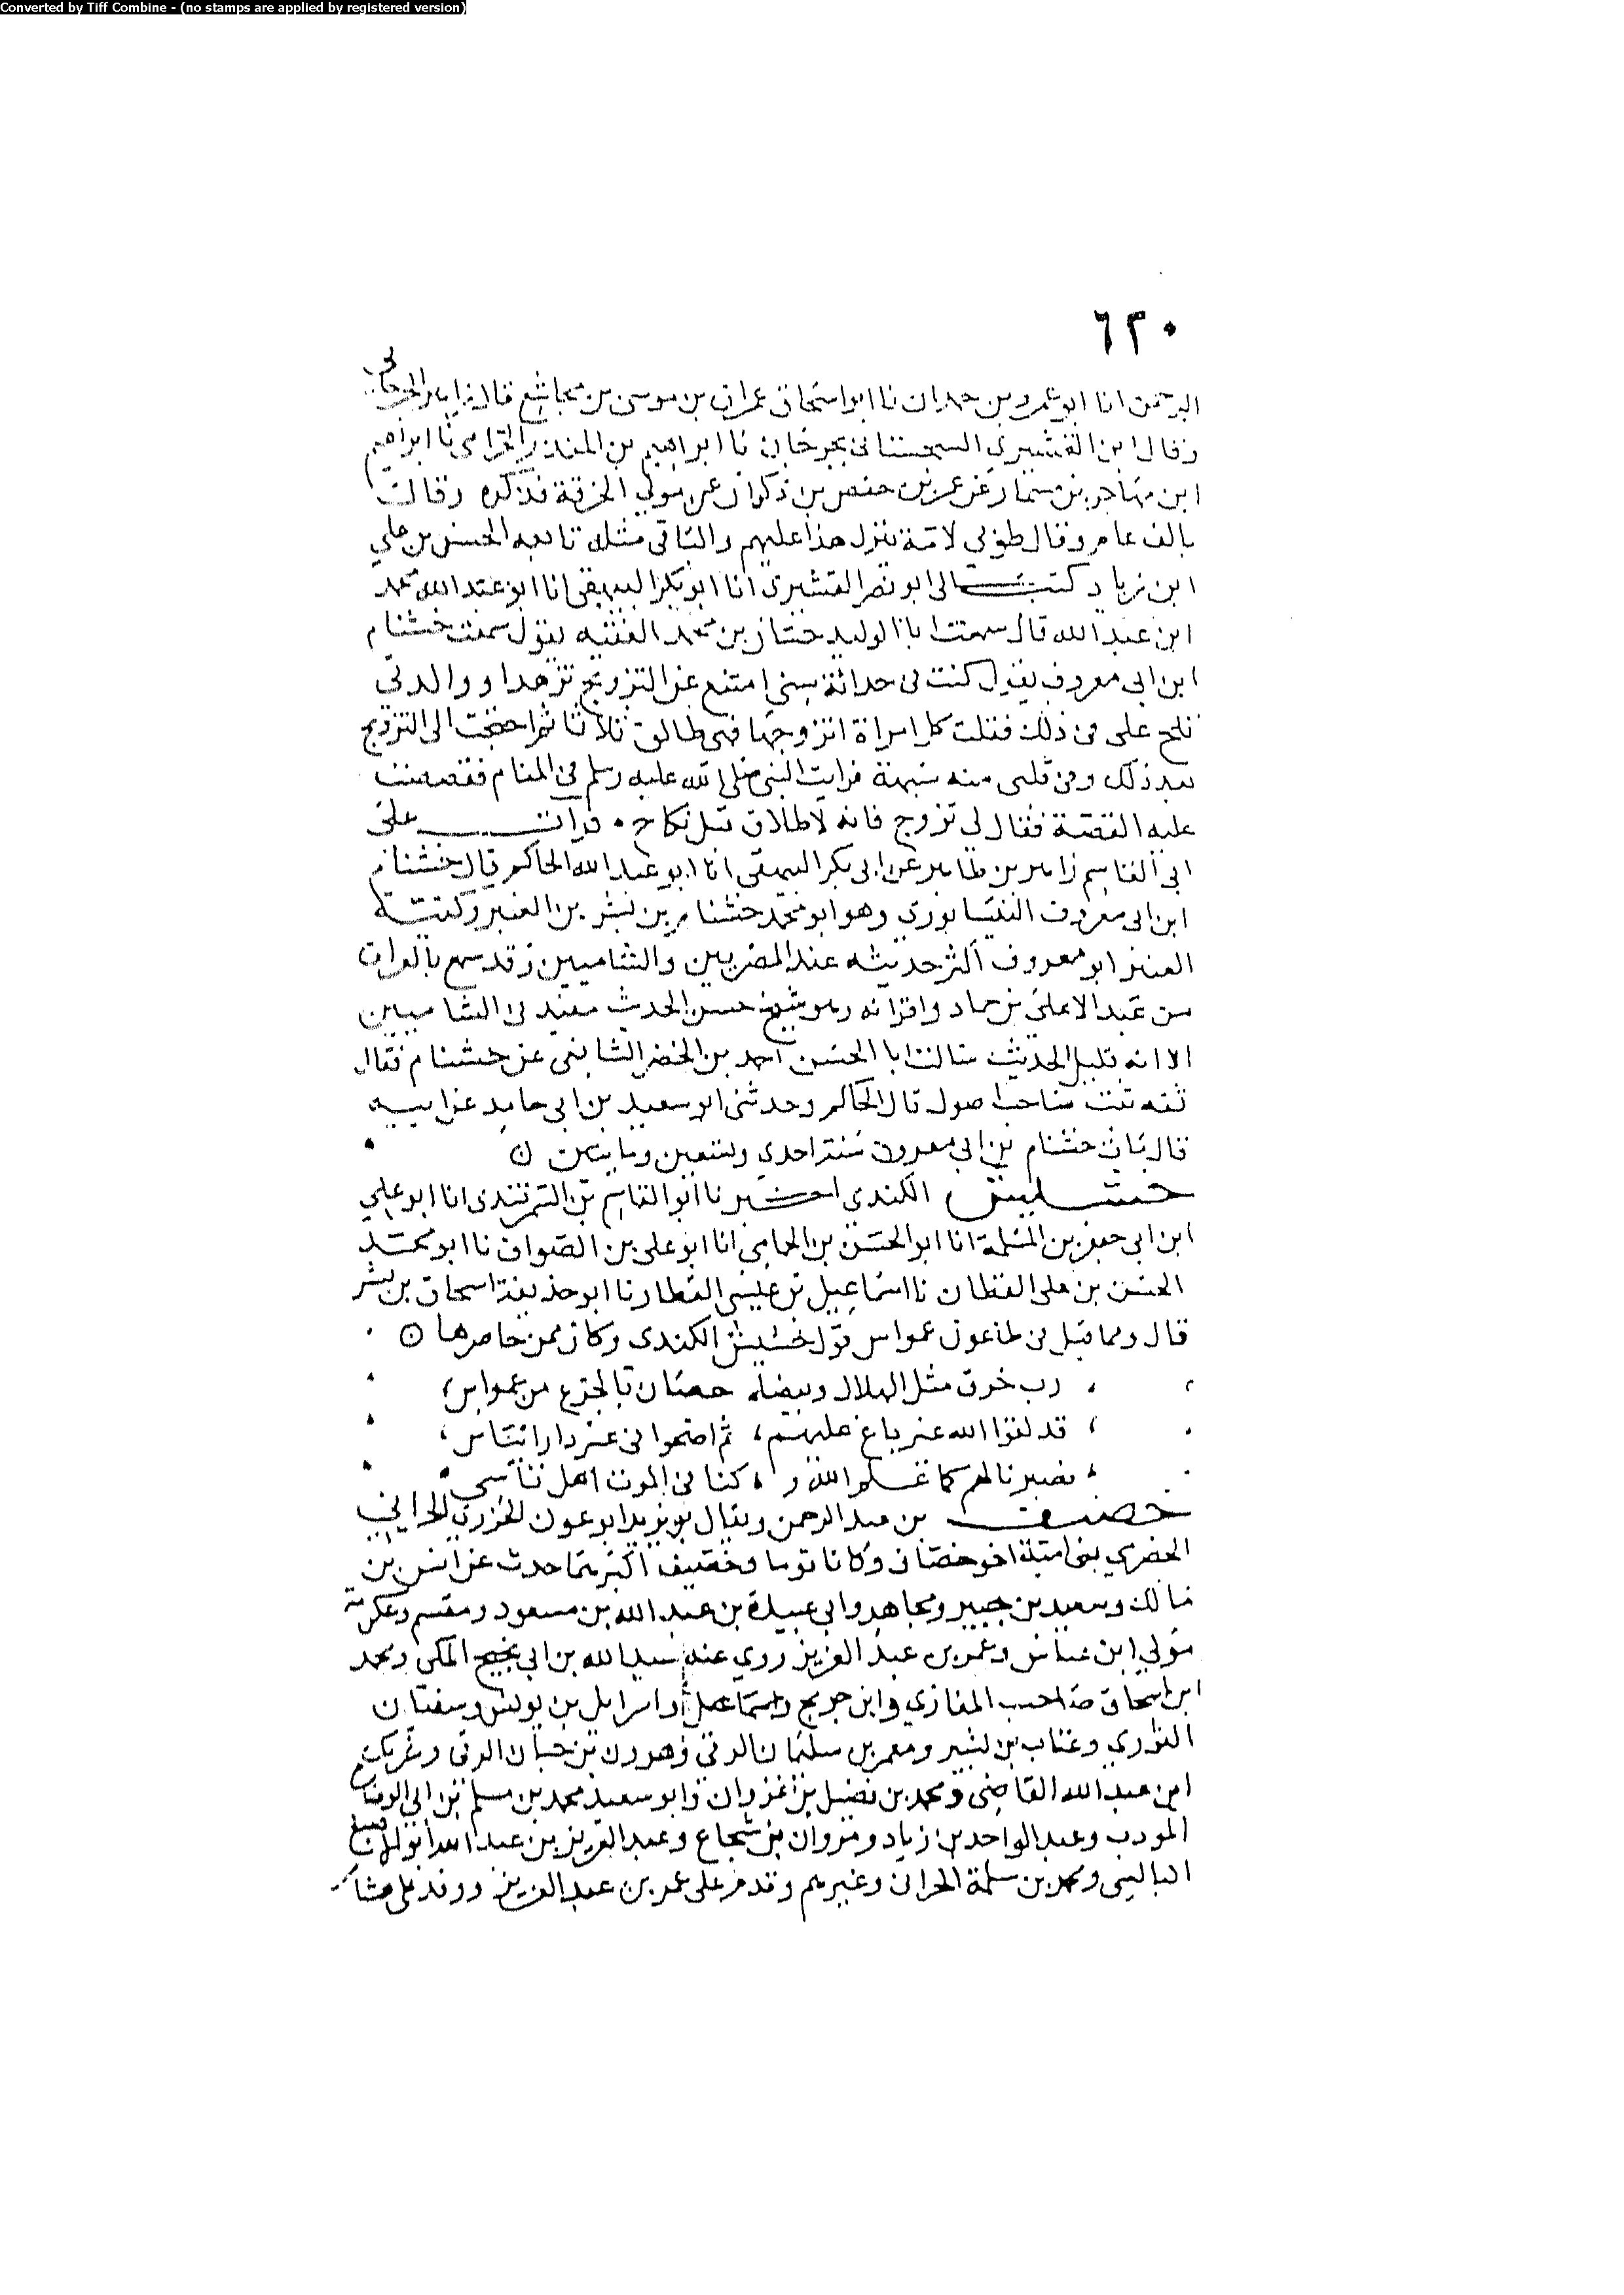 Converted by Tiff Combine - (no stamps are applied by registered version)
٦٢٠
الرحمن انا ابو عمرو بن حمدان نا ابو اسحاق عمران بن موسى بن مجاشع قال الجرجاني
وقال ابن القشيري السجستاني بجرجان نا ابراهيم بن المنذر الحزامي نا ابراهيم
ابن مهاجر بن مسمار عن عمر بن حفص بن ذكوان عن مولى الحرقة فذكره وقالت
بالف عام وقال طوبى لامة ينزل هذا عليهم والباقي مثله تابعه الحسن بن علي
ابن زياد كتب الى ابو نصر القشيري انا ابو بكر البيهقي انا ابو عبد الله محمد
ابن عبد الله قال سمعت ابا الوليد حسان بن محمد الفقيه يقول سمعت خشنام
ابن ابي معروف يقول كنت في حداثة سني امتنع عن التزويج تزهدا ووالدتي
تلح علي في ذلك فقلت كل امراة اتزوجها فهي طالق ثلاثا ثم احتجت الى التزويج
بعد ذلك وفي قلبي منه شبهة فرايت النبي صلى الله عليه وسلم في المنام فقصصت
عليه القصة فقال لي تزوج فانه لا طلاق قبل نكاح ۰ قرات على
ابي القاسم زاهر بن طاهر عن ابي بكر البيهقي انا ابو عبد الله الحاكم قال خشنام
ابن ابي معروف النيسابوري وهو ابو محمد خشنام بن بشر بن العنبر وكنية
العنبر ابو معروف اكثر حديثه عند المصريين والشاميين وقد سمع بالعراق
من عبد الاعلى بن حماد واقرانه وهو شيخ حسن الحديث مفيد في الشاميين
الا انه قليل الحديث سالت ابا الحسن احمد بن الخضر الشافعي عن خشنام فقال
ثقة ثبت صاحب اصول قال الحاكم وحدثني ابو سعيد بن ابي حامد عن ابيه
قال مات خشنام بن ابي معروف سنة احدي وتسعين ومايتين
خشيش الكندي اخبرنا ابو القاسم بن السمرقندي انا ابو علي
ابن ابي جعفر بن المسلمة انا ابو الحسن بن الحمامي انا ابو علي بن الصواف نا ابو محمد
الحسن بن علي القطان نا اسماعيل بن عيسى العطار نا ابو حذيفة اسحاق بن بشر
قال ومما قيل في طاعون عمواس قول خشيش الكندي وكان ممن حاصرها
رب خرق مثل الهلال وبيضاء حصان بالجزع من عمواس
قد لقوا الله غير باغ عليهم ، ثم اضحوا في غير دار ايناس
فصبرنا لهم كما علم الله و ، كنا في الموت اهل تاسي
خصيف بن عبد الرحمن ويقال بن يزيد ابو عون الجزري الحراني
الخضري بني امية اخو خصاف وكانا توما وخصيف اكبرهما حدث عن انس بن
مالك وسعيد بن جبير ومجاهد وابي عبيدة بن عبد الله بن مسعود ومقسم وعكرمة
مولى ابن عباس وعمر بن عبد العزيز روي عنه عبد الله بن ابي نجيح المكي ومحمد
ابن اسحاق صاحب المغازي وابن جريج واسرايل بن يونس وسفيان
الثوري وعتاب بن بشير ومعمر بن سليمان الرقي وهرون بن حيان الرقي وشريك
ابن عبد الله القاضي ومحمد بن فضيل بن غزوان وابو سعيد محمد بن مسلم بن ابي الوضاح
المودب وعبد الواحد بن زياد ومروان بن شجاع وعبد العزيز بن عبد
البالسي ومحمد بن سلمة الحراني وغيرهم وقدم على عمر بن عبد العزيز ووفد على هشام